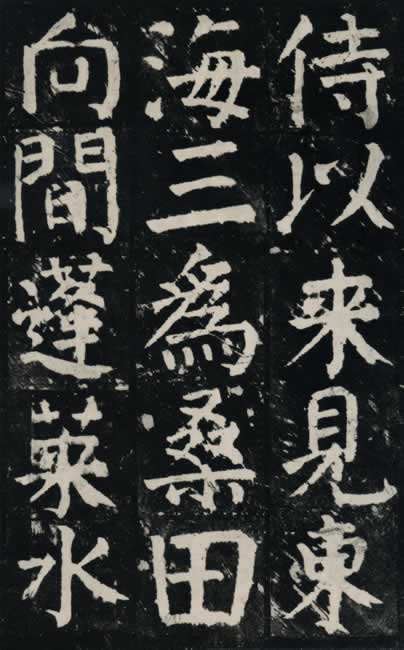 侍以来見東
海三為桑田
向間蓬萊水